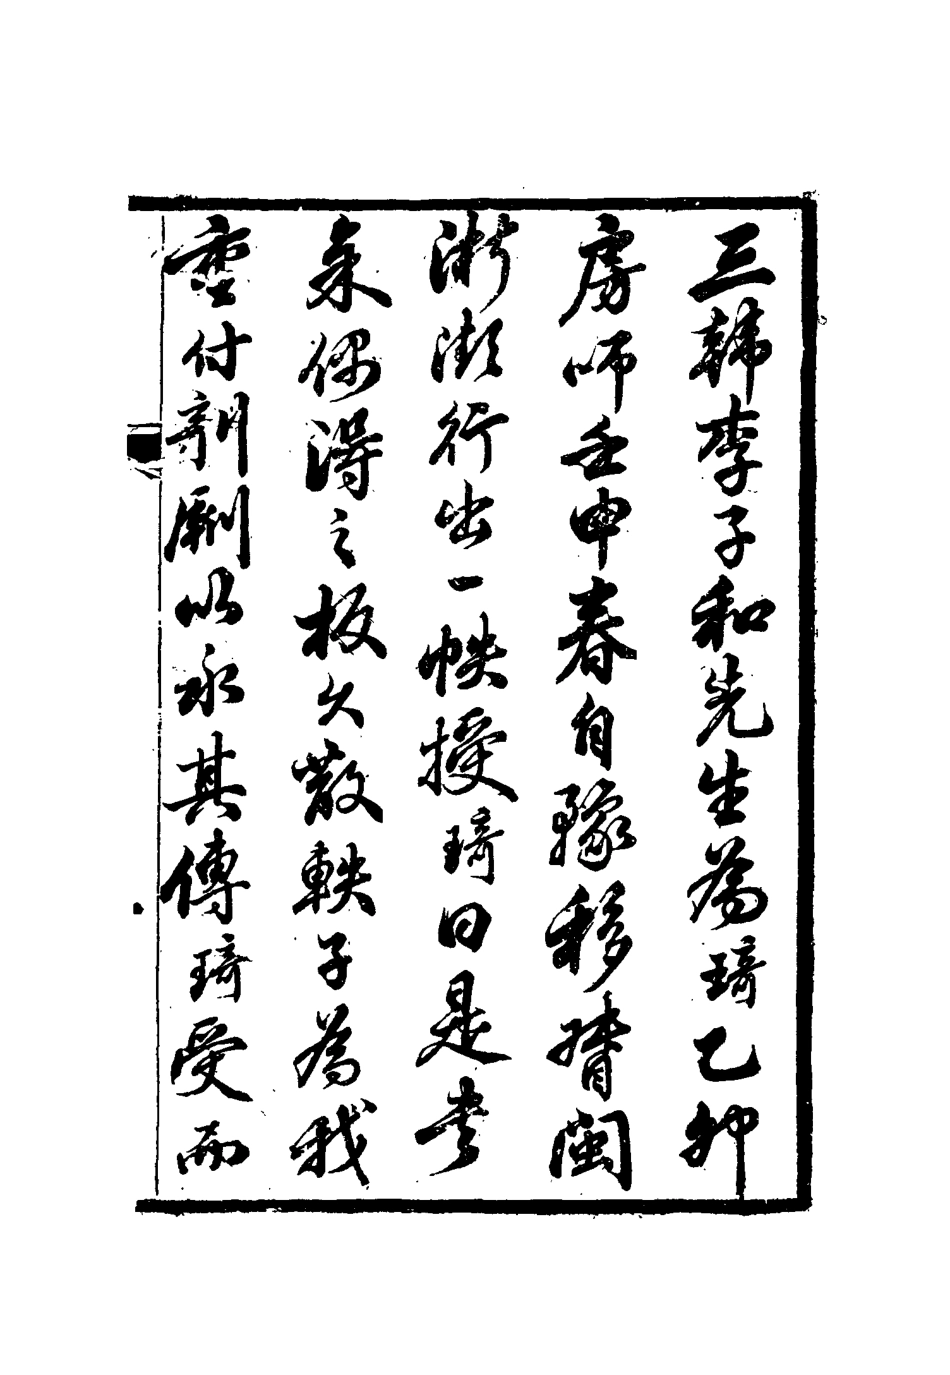 三韓李子和先生為琦乙卯
房師壬申春自豫移督閩
浙瀕行出一帙授琦曰是書
偶得之板久散軼子為我
重付剞劂以永其傳琦受而